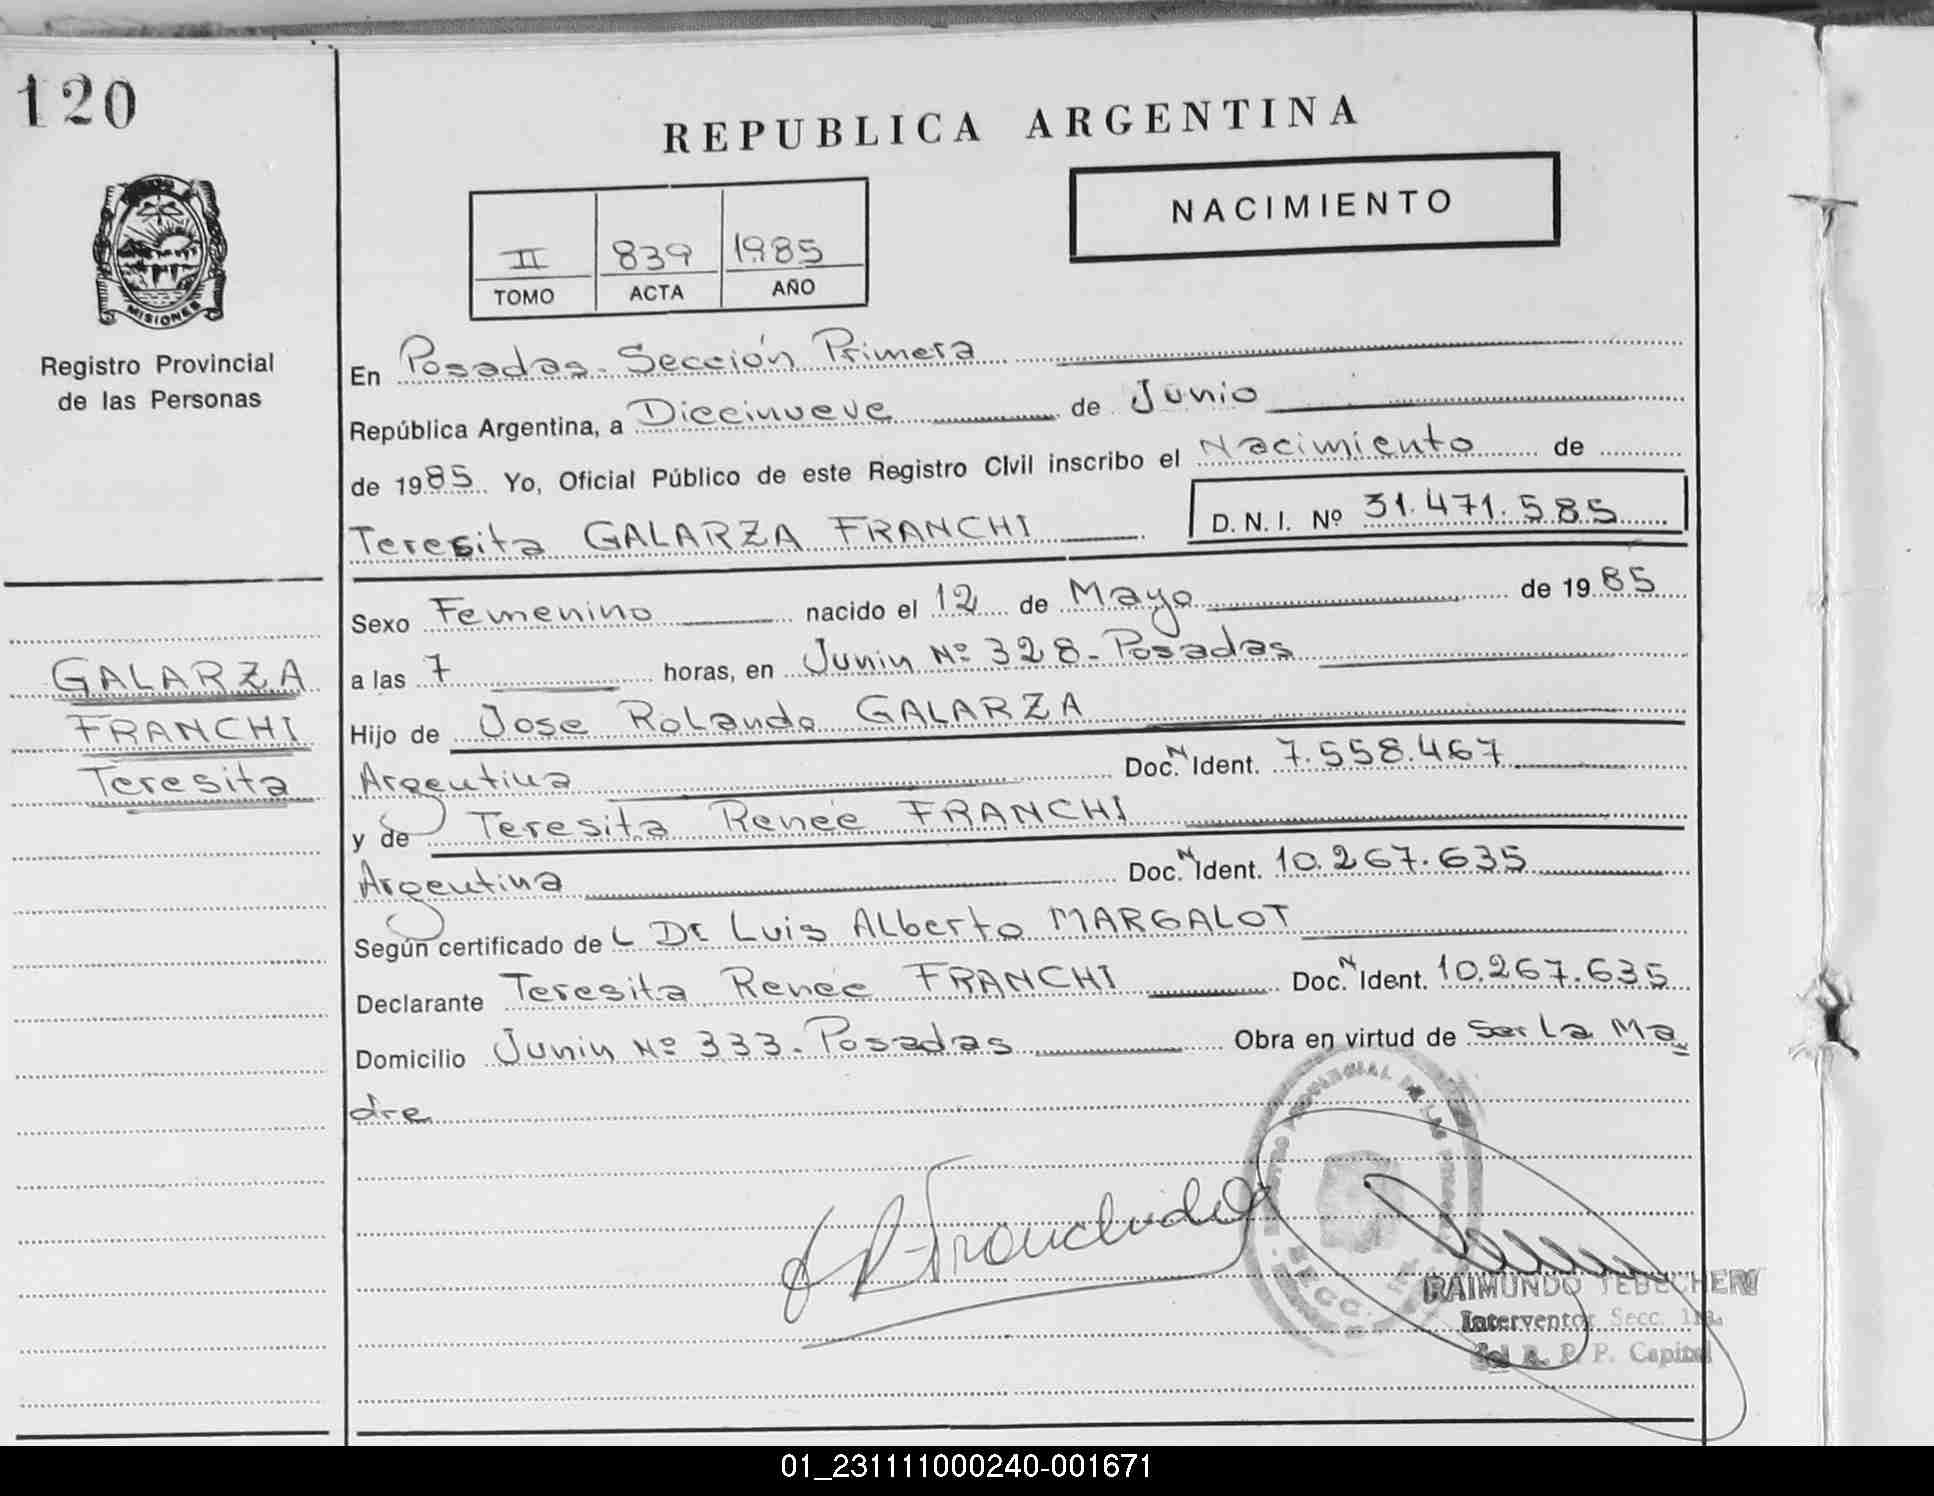 120
REPUBLICA ARGENTINA
NACIMIENTO
II 839 1985
TOMO ACTA AÑO
MISIONES
Registro Provincial
de las Personas
En Posadas. Sección Primera
República Argentina, a Diecinueve de Junio
de 1985. Yo, Oficial Público de este Registro Civil inscribo el Nacimiento de
Teresita GALARZA FRANCHI D. N. I. Nº 31.471.585
Sexo Femenino nacido el 12 de Mayo de 1985
a las 7 horas, en Junin Nº 328. Posadas
Hijo de Jose Rolando GALARZA
Argentina Doc. N Ident. 7.558.467
y de Teresita Reneé FRANCHI
Argentina Doc. N Ident. 10.267.635
Según certificado de L Dr Luis Alberto MARGALOT
Declarante Teresita Reneé FRANCHI Doc. N Ident. 10.267.635
Domicilio Junin Nº 333. Posadas Obra en virtud de Ser La Ma
dre
GALARZA
FRANCHI
Teresita
RAIMUNDO
Interventor Secc. 1ra.
del R. P. P. Capital
01_231111000240-001671